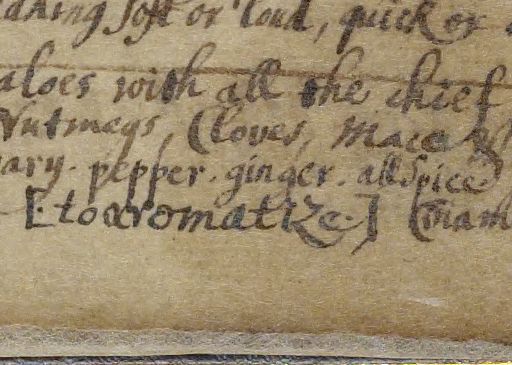 making soft or loud, quick or
aloes with all the chief
Nutmegs, Cloves, Mace &
ary. pepper. ginger. allSpice
[. to aromatize.]